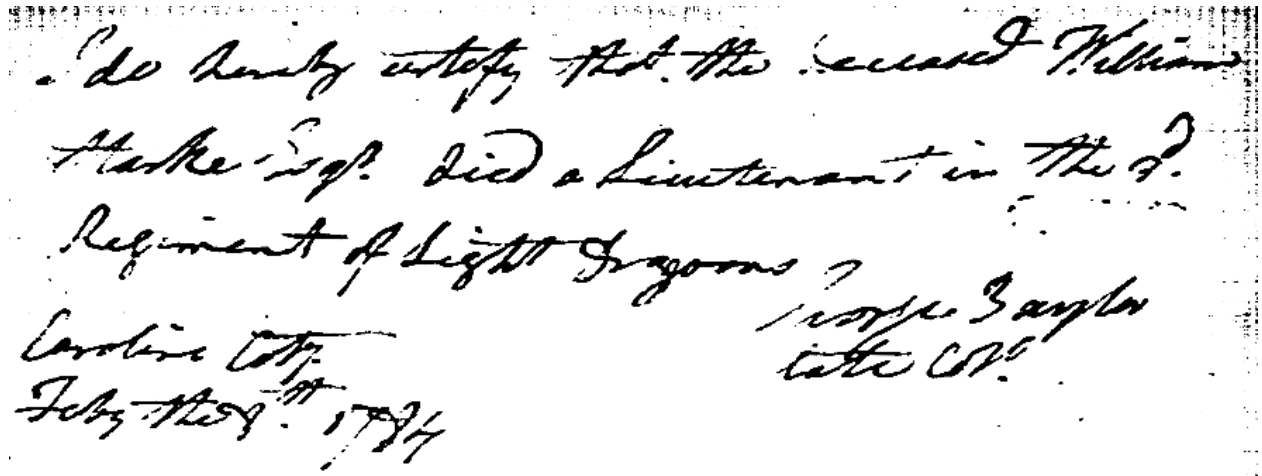 I do hereby certify that the Deceased William
Starke Esqr. died a Lieutenant in the 3d.
Regiment of Light Dragoons
George Baylor
Late Col.
Caroline Coty.
Feby the 8th. 1784